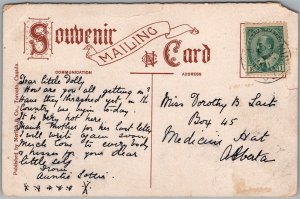 Souvenir
MAILING
Card
COMMUNICATION
ADDRESS
Dear little Dolly
How are you all getting on?
Have they thrashed yet, in the
Country we again today
It is very hot here,
Thank Mother for her last letter
I will write again soon
Much love to everybody
& kisses for your dear
little self
From
Auntie
x x x x x x
Miss Dorothy B.
Box 45
Medicine Hat
Alberta